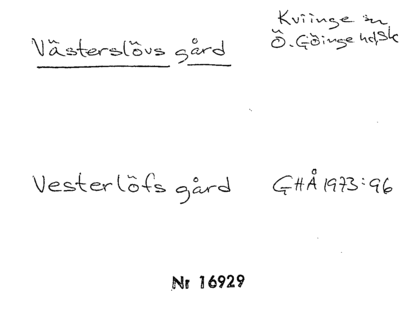 Västerslövs gård
Kviinge sn
Ö. Göinge hd, Sk
Vesterlöfs gård
GHÅ 1973:96
Nr 16929